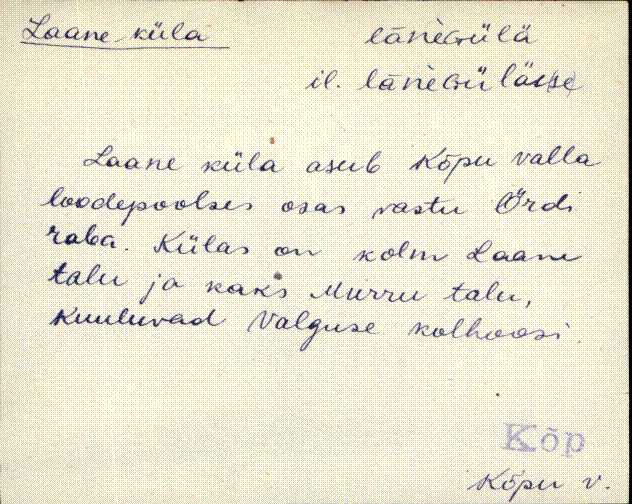 Laane küla
lāneGülä
il. lāneGülässe
Laane küla asub Kõpu valla
loodepoolses osas vastu Ördi
raba. Külas on kolm Laane
talu ja kaks Murru talu,
Kuuluvad Valguse kolhoosi.
Kõp
Kõpu v.